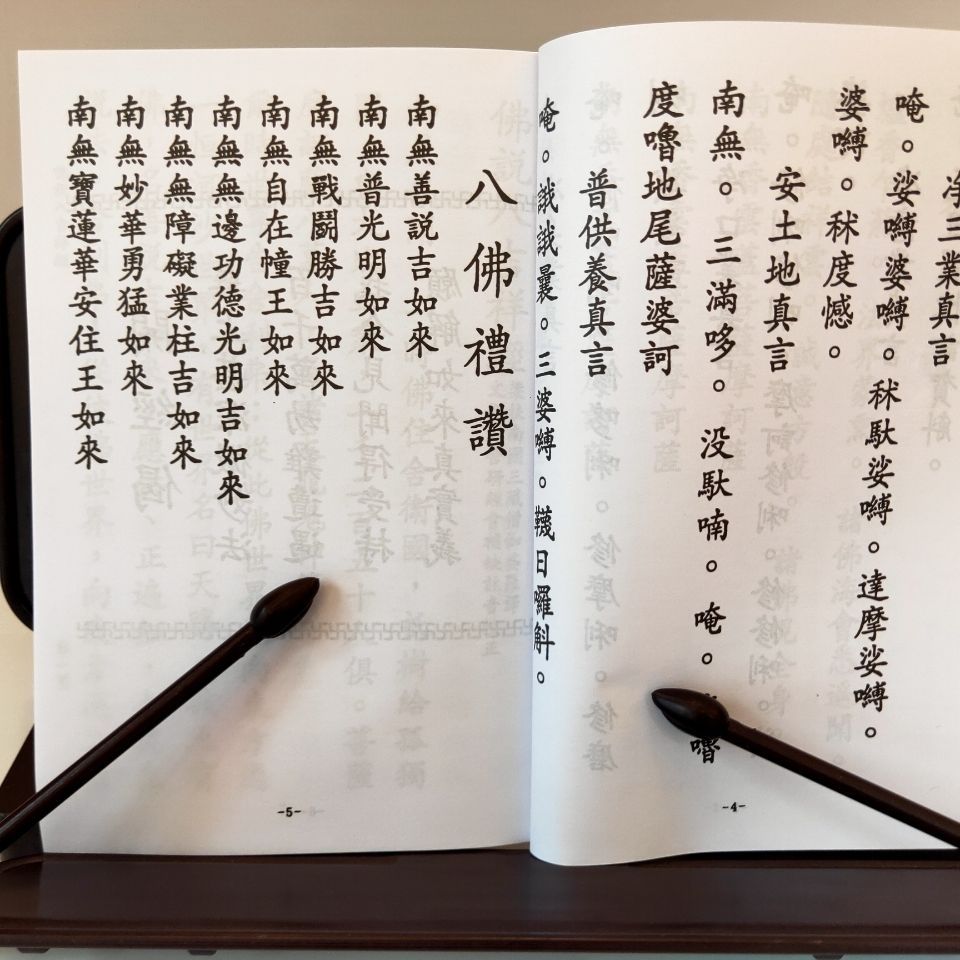 净三業真言
唵。娑嚩婆嚩。秫馱娑嚩。達摩娑嚩。
婆嚩。秫度憾。
安土地真言
南無。三滿哆。没馱喃。唵。
度嚕地尾薩婆訶
普供養真言
唵。誐誐曩。三婆嚩。韈日囉斛。
-4-
八佛禮讚
南無善説吉如來
南無普光明如來
南無戰鬪勝吉如來
南無自在幢王如來
南無無邊功德光明吉如來
南無無障礙業柱吉如來
南無妙華勇猛如來
南無寶蓮華安住王如來
-5-